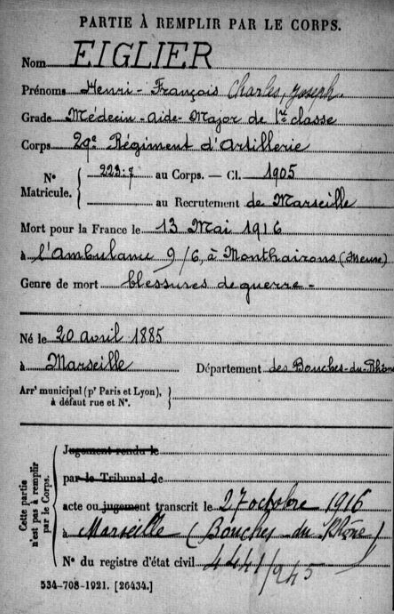 PARTIE À REMPLIR PAR LE CORPS.
Nom EIGLIER
Prénoms Henri-François Charles, Joseph.
Grade Médecin-aide-Major de 1re classe
Corps 29e Régiment d'Artillerie
N° 223:7 au Corps. — Cl. 1905
Matricule. au Recrutement de Marseille
Mort pour la France le 13 Mai 1916
à l'Ambulance 9/6, à Monthairons (Meuse)
Genre de mort blessures de guerre -
Né le 20 avril 1885
à Marseille Département des Bouches-du-Rhône
Arrt municipal (pr Paris et Lyon),
à défaut rue et N°.
Cette partie
n'est pas à remplir
par le Corps.
Jugement rendu le
par le Tribunal de
acte ou jugement transcrit le 27 octobre 1916
à Marseille (Bouches du Rhône)
N° du registre d'état civil 4441/945
534-708-1921. [26434.]